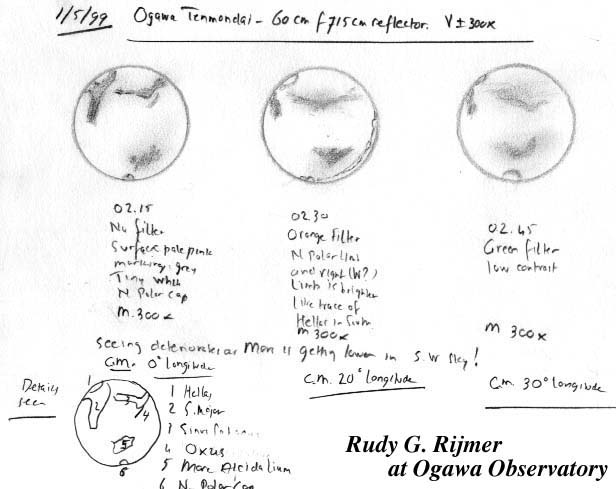 1/5/99 Ogawa Tenmondai - 60 cm f 715 cm reflector. V ± 300x
02.15
No filter
Surface pale pink
markings, grey
Tiny white
N Polar Cap
M. 300x
02.30
Orange Filter
N Polar Limb
and right (W?)
Limb is brighter
Like trace of
Hellas in South
M 300x
02.45
Green filter
low contrast
M 300x
Seeing deteriorates as Mars is getting lower in S.W sky!
C.M. 0° longitude
C.M. 20° longitude
C.M. 30° longitude
Details
seen
1
2
3
4
5
6
1 Hellas
2 S. Major
3 Sinus
4 Oxus
5 Mare Acidalium
6 N. Polar Cap
Rudy G. Rijmer
at Ogawa Observatory